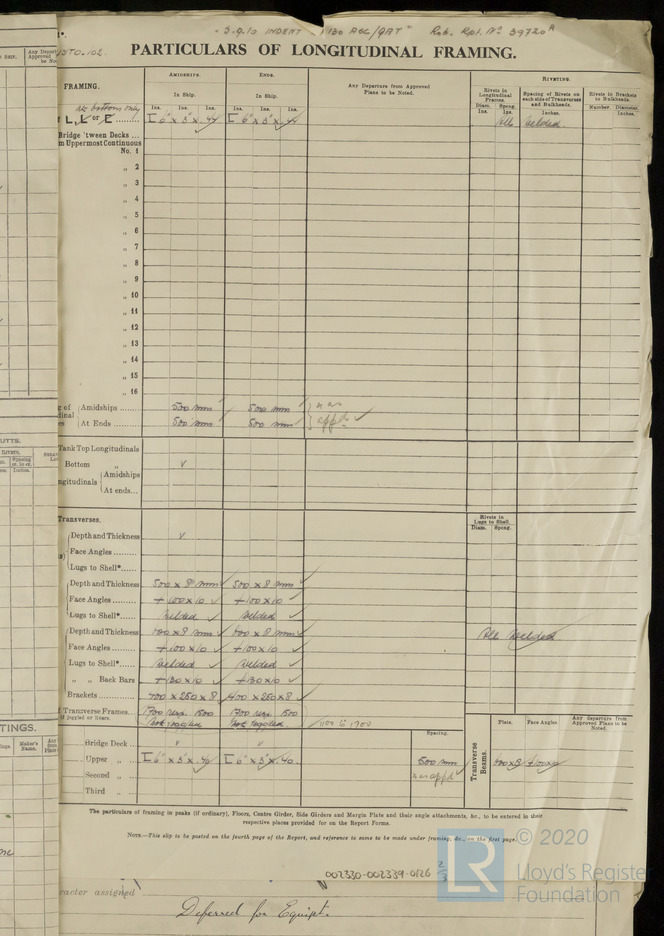 "S.9.10 INDENT
Rob. Rpt. No 39720A
STO. 102.
PARTICULARS OF LONGITUDINAL FRAMING.
FRAMING.
AMIDSHIPS.
ENDS.
In Ship.
In Ship.
Any Departure from Approved
Plans to be Noted.
RIVETING.
Rivets in
Longitudinal
Frames.
Spacing of Rivets on
each side of Transverses
and Bulkheads.
Rivets in Brackets
to Bulkheads.
Diam. Spcng.
Number. Diameter.
Ins. Ins. Inches. Inches.
Ins. Ins. Ins. Ins. Ins. Ins.
bottoms only
L, L or [ ...... [ 6" x 3" x .44 [ 6" x 3" x .44 All welded.
Bridge 'tween Decks ...
m Uppermost Continuous
No. 1
" 2
" 3
" 4
" 5
" 6
" 7
" 8
" 9
" 10
" 11
" 12
" 13
" 14
" 15
" 16
g of Amidships ...... 500 mm 500 mm as
dinal
es At Ends ...... 500 mm 500 mm appd ✓
Tank Top Longitudinals
Bottom " ✓
ngitudinals Amidships
At ends...
Transverses.
Rivets in
Lugs to Shell.
Diam. Spcng.
Depth and Thickness ✓
Face Angles ........
Lugs to Shell*......
Depth and Thickness 500 x 8 mm ✓ 500 x 8 mm ✓
Face Angles ........ + 100 x 10 ✓ + 100 x 10 ✓
Lugs to Shell*...... Welded ✓ Welded ✓
Depth and Thickness x 8 mm ✓ x 8 mm ✓ All Welded
Face Angles ........ + 100 x 10 ✓ + 100 x 10 ✓
Lugs to Shell*...... Welded ✓ Welded ✓
" " Back Bars + 130 x 10 ✓ + 130 x 10 ✓
Brackets ........ 400 x 250 x 8 ✓ 400 x 250 x 8 ✓
Transverse Frames. 1700 1500 1700 1500
if joggled or liners. Not joggled Not joggled
Spacing.
Transverse
Beams.
Plate. Face Angles
Any departure from
Approved Plans to be
Noted.
Bridge Deck ... ✓ ✓
Upper " ... [ 6" x 3" x .40 [ 6" x 3" x .40 500 mm
Second " ... as appd
Third " ...
The particulars of framing in peaks (if ordinary), Floors, Centre Girder, Side Girders and Margin Plate and their angle attachments, &c., to be entered in their
respective places provided for on the Report Forms.
NOTE.—This slip to be posted on the fourth page of the Report, and reference to same to be made under framing, &c., on the first page.
002330-002339-0126 2/3
racter assigned
Deferred for Equipt.
UTTS.
TINGS.
LR
© 2020
Lloyd's Register
Foundation